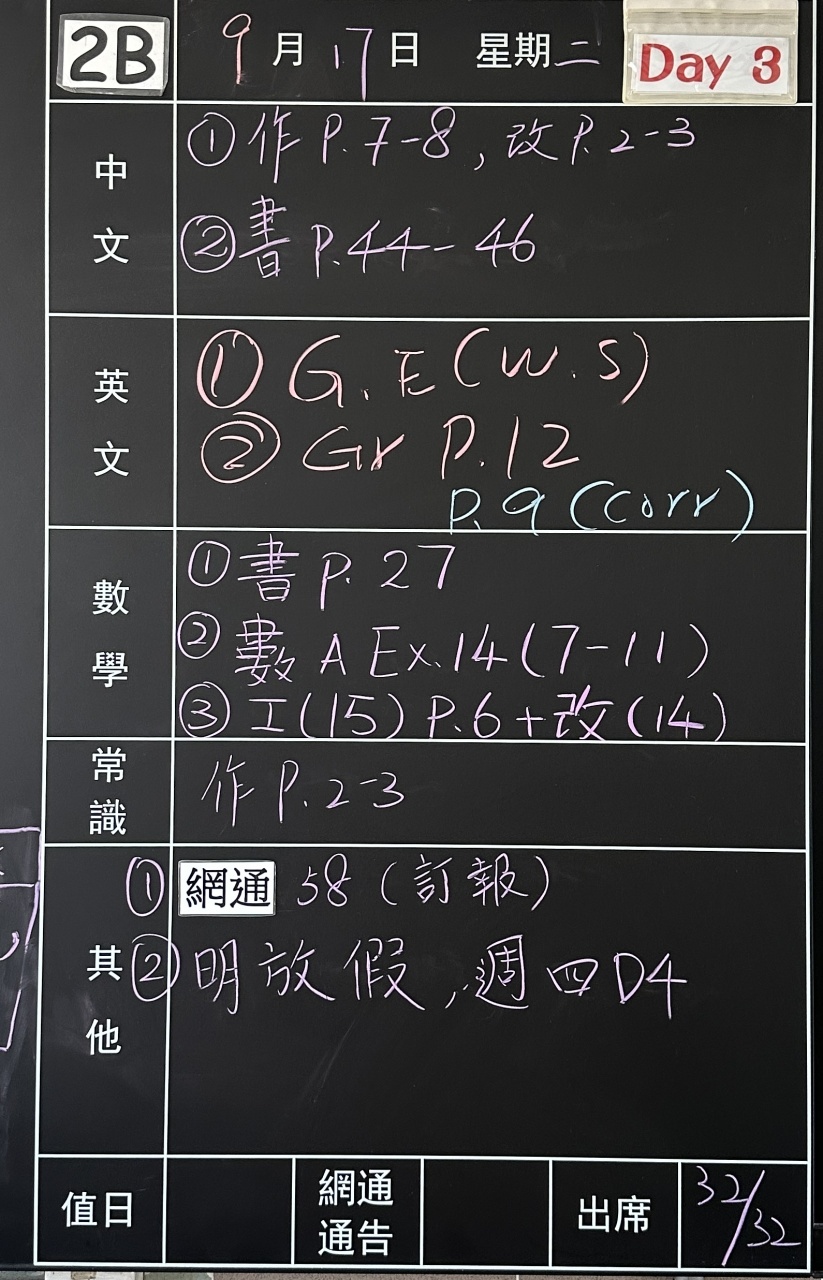 2B 9月17日 星期二 Day 3
中文
①作P.7-8,改P.2-3
②書P.44-46
英文
①G.E(W.S)
②Gr P.12
P.9(corr)
數學
①書P.27
②數A Ex.14(7-11)
③工(15)P.6+改(14)
常識
作P.2-3
其他
①網通58(訂報)
②明放假,週四D4
值日 網通通告 出席 32/32